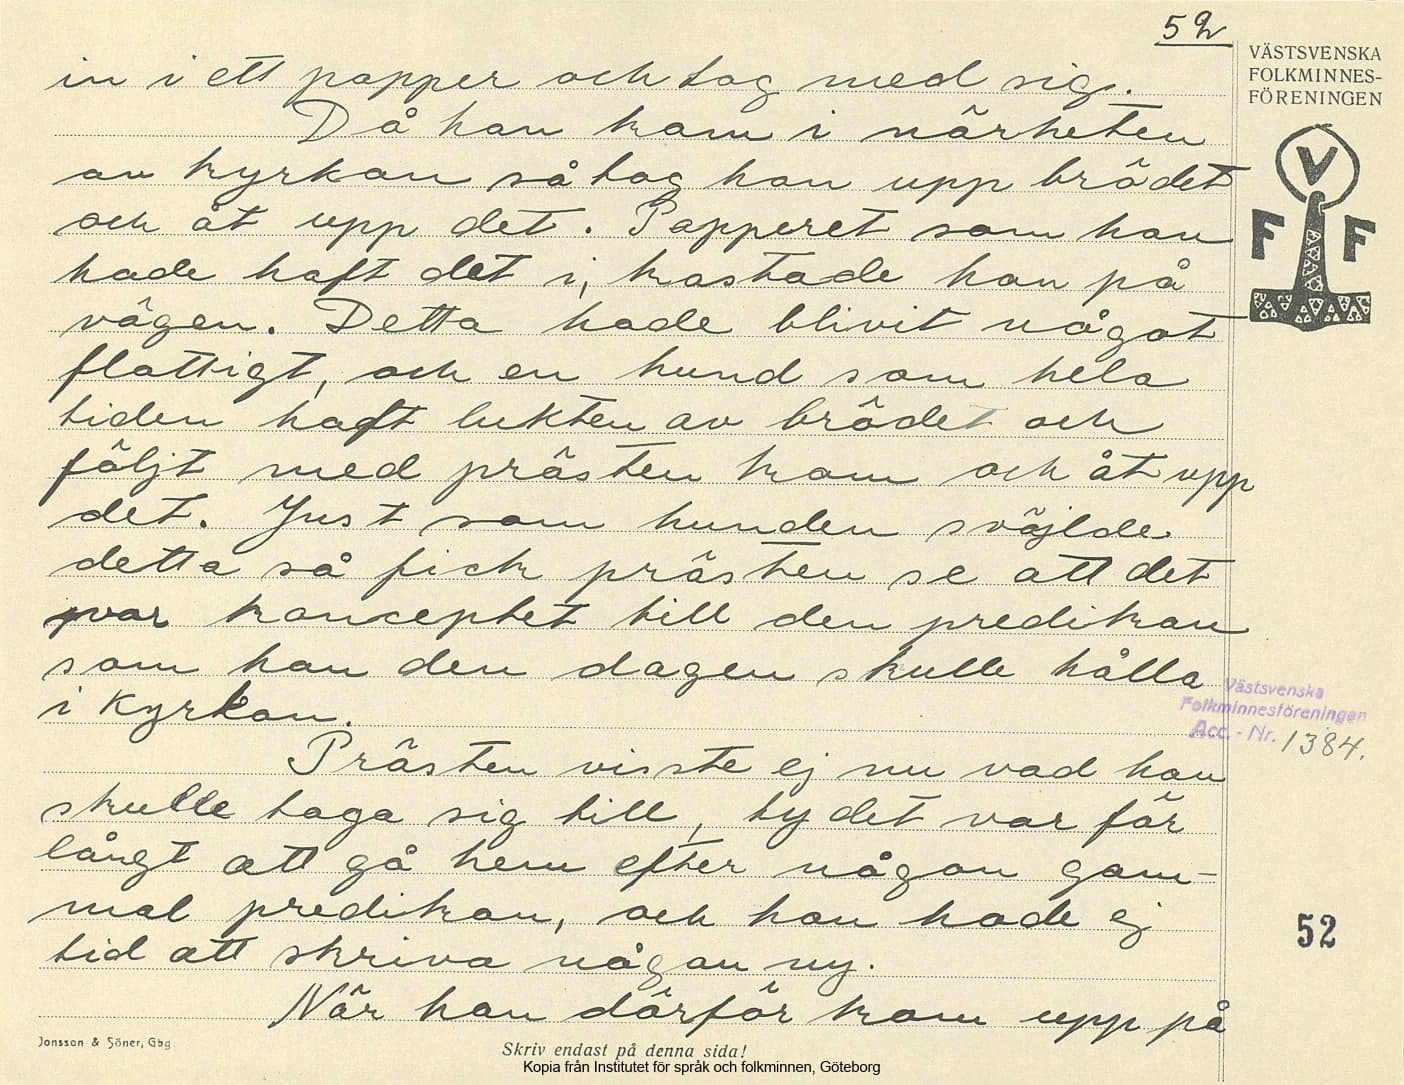 52
VÄSTSVENSKA
FOLKMINNES-
FÖRENINGEN
V
F F
in i ett papper och tog med sig.
Då han kom i närheten
av kyrkan så tog han upp brödet
och åt upp det. Papperet som han
hade haft det i, kastade han på
vägen. Detta hade blivit något
flottigt, och en hund som hela
tiden haft lukten av brödet och
följt med prästen kom och åt upp
det. Just som hunden sväjlde
detta så fick prästen se att det
var konceptet till den predikan
som han den dagen skulle hålla
i kyrkan.
Västsvenska
Folkminnesföreningen
Acc. - Nr. 1384.
Prästen visste ej nu vad han
skulle taga sig till, ty det var för
långt att gå hem efter någon gam-
mal predikan, och han hade ej
tid att skriva någon ny.
52
När han därför kom upp på
Jonsson & Söner, Gbg
Skriv endast på denna sida!
Kopia från Institutet för språk och folkminnen, Göteborg